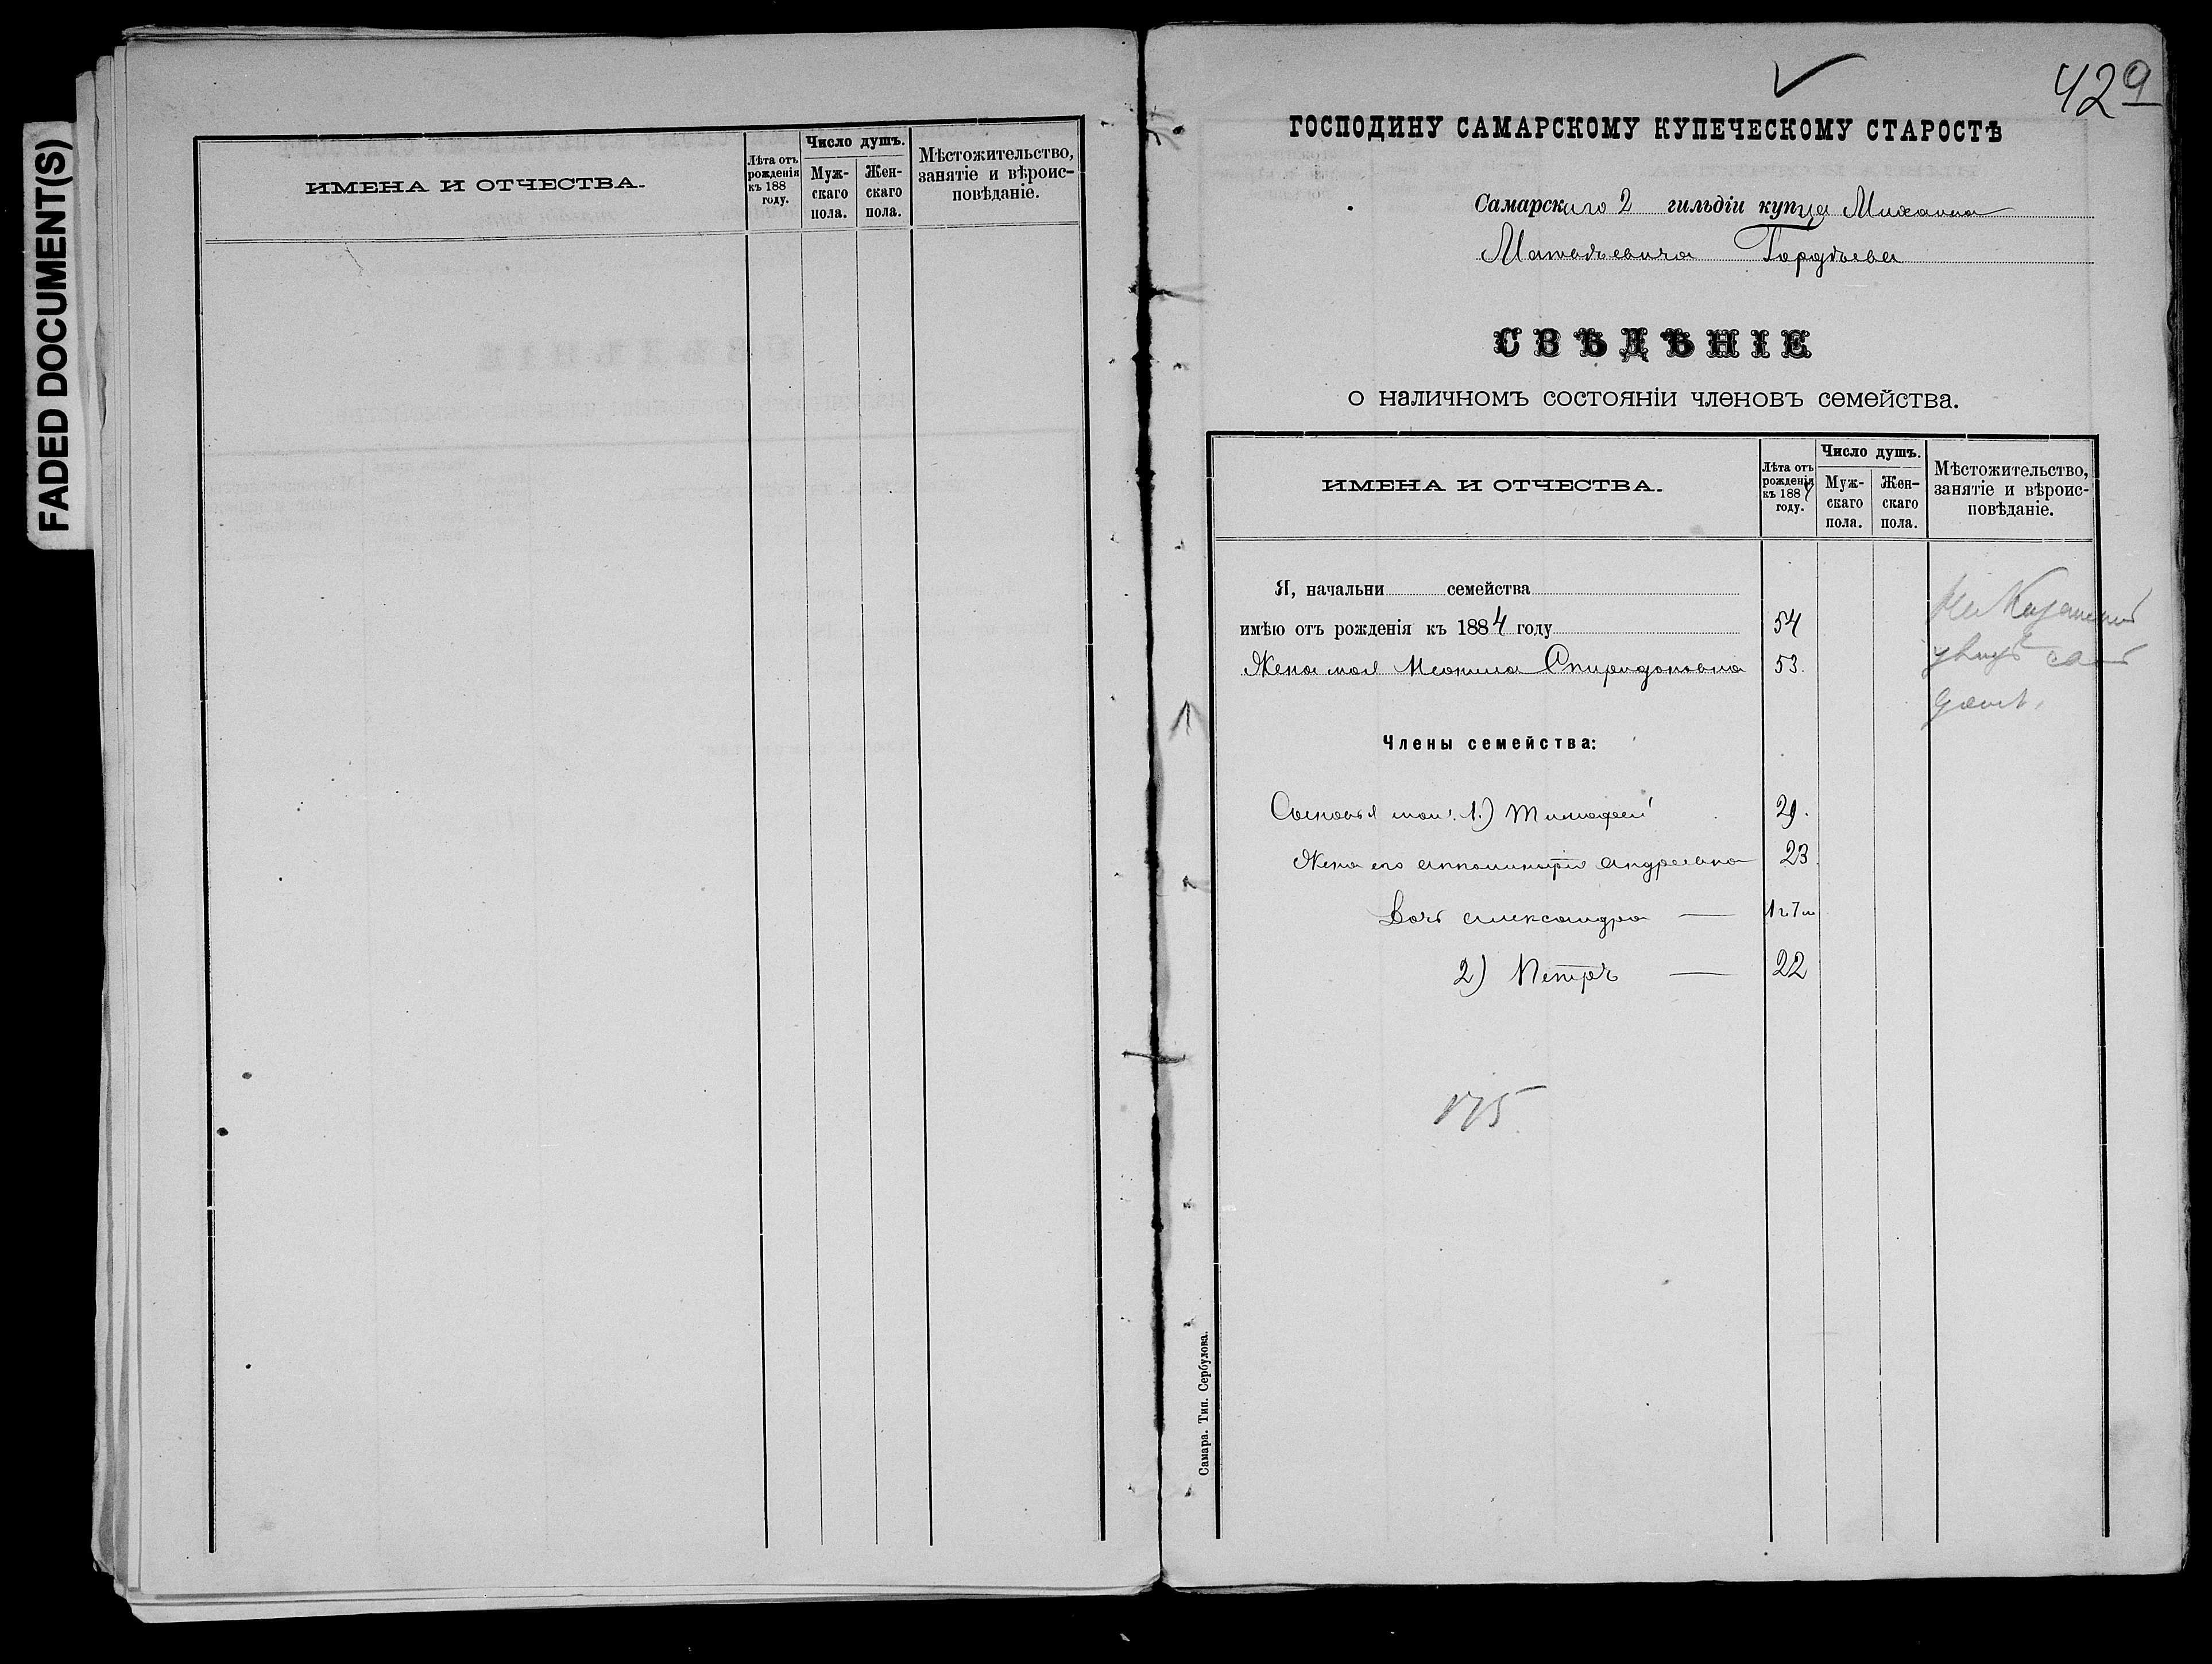 FADED DOCUMENT(S)
ИМЕНА И ОТЧЕСТВА.
Лѣта отъ рожденія къ 188 году.
Число душъ.
Мужскаго пола.
Женскаго пола.
Мѣстожительство, занятіе и вѣроисповѣданіе.
429
ГОСПОДИНУ САМАРСКОМУ КУПЕЧЕСКОМУ СТАРОСТѢ
Самарскаго 2 гильдіи купца Михаила
Матвѣевича Гордѣева
СВѢДѢНІЕ
о наличномъ состояніи членовъ семейства.
ИМЕНА И ОТЧЕСТВА.
Лѣта отъ рожденія къ 1884 году.
Число душъ.
Мужскаго пола.
Женскаго пола.
Мѣстожительство, занятіе и вѣроисповѣданіе.
Я, начальни семейства
имѣю отъ рожденія къ 1884 году 54
Жена моя Спиридоновна 53.
На Казанской
домъ
Члены семейства:
Сыновья мои: 1.) Тимофей 29.
Жена его Андреевна 23
Дочь Александра — 1 г 7 м
2) Петръ — 22
175
Самара. Тип. Сербулова.